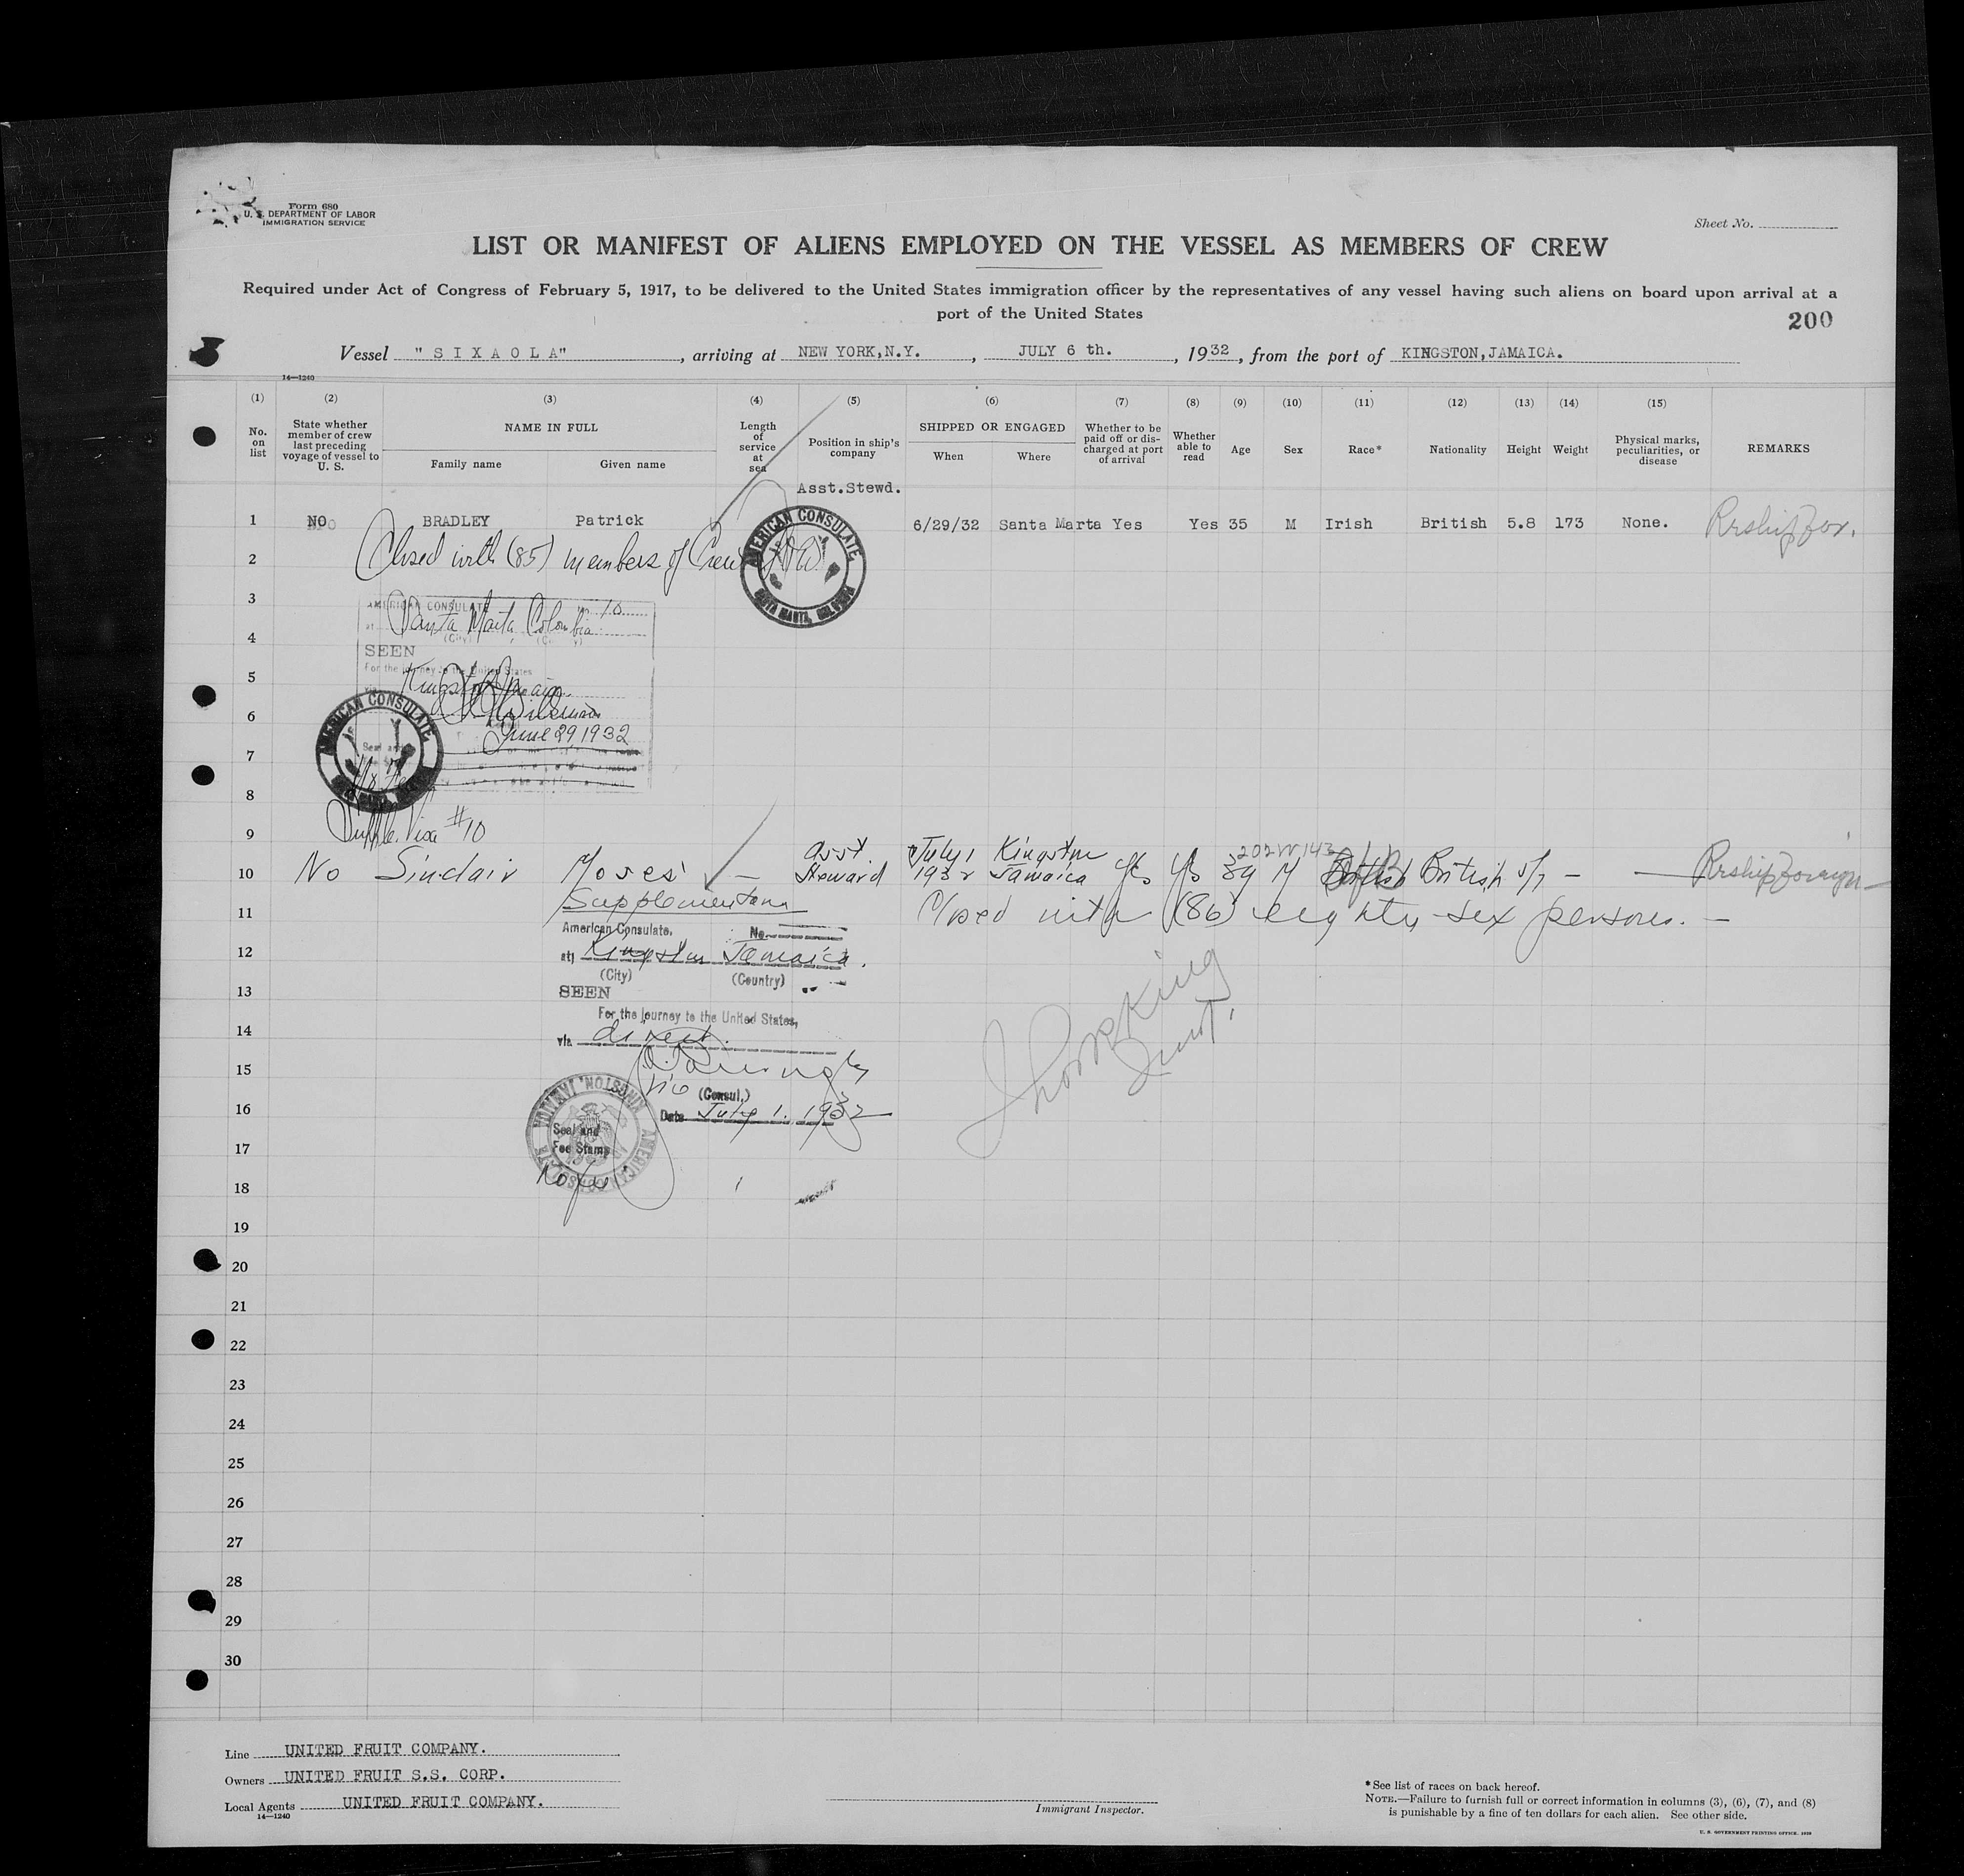 Form 680
U. S. DEPARTMENT OF LABOR
IMMIGRATION SERVICE
Sheet No.
LIST OR MANIFEST OF ALIENS EMPLOYED ON THE VESSEL AS MEMBERS OF CREW
Required under Act of Congress of February 5, 1917, to be delivered to the United States immigration officer by the representatives of any vessel having such aliens on board upon arrival at a
port of the United States
200
Vessel "SIXAOLA", arriving at NEW YORK,N.Y., JULY 6 th., 1932, from the port of KINGSTON,JAMAICA.
14—1240
(1) (2) (3) (4) (5) (6) (7) (8) (9) (10) (11) (12) (13) (14) (15)
No. on list
State whether member of crew last preceding voyage of vessel to U. S.
NAME IN FULL
Family name Given name
Length of service at sea
Position in ship's company
SHIPPED OR ENGAGED
When Where
Whether to be paid off or discharged at port of arrival
Whether able to read
Age
Sex
Race*
Nationality
Height
Weight
Physical marks, peculiarities, or disease
REMARKS
Asst.Stewd.
1 NO BRADLEY Patrick 6/29/32 Santa Marta Yes Yes 35 M Irish British 5.8 173 None. Rrship For.
2 Closed with (85) members of Crew
AMERICAN CONSULATE
SANTA MARTA, COLOMBIA
3 AMERICAN CONSULATE No. 10
at Santa Marta Colombia
4 (City)
SEEN
5 For the journey to the United States
Kingston Jamaica
6
June 29, 1932
7
AMERICAN CONSULATE
Seal and
No Fee
8
9 Supple. Visa #10
202W143
10 No Sinclair Moses — Asst Steward July 1 1932 Kingston Jamaica Yes Yes 39 M British 5/7 — — Rrship Foreign
11 Supplementary Closed with (86) eighty-six persons. —
American Consulate, No.
12 at Kingston Jamaica.
(City) (Country)
13 SEEN
For the journey to the United States,
14 via direct.
15
Vice (Consul,)
16 Date July 1, 1932
KINGSTON, JAMAICA
AMERICAN CONSULATE
Seal and
Fee Stamp
17
No fee
18
19
20
21
22
23
24
25
26
27
28
29
30
Line UNITED FRUIT COMPANY.
Owners UNITED FRUIT S.S. CORP.
Local Agents UNITED FRUIT COMPANY.
14—1240
Immigrant Inspector.
*See list of races on back hereof.
NOTE.—Failure to furnish full or correct information in columns (3), (6), (7), and (8)
is punishable by a fine of ten dollars for each alien. See other side.
U. S. GOVERNMENT PRINTING OFFICE. 1928